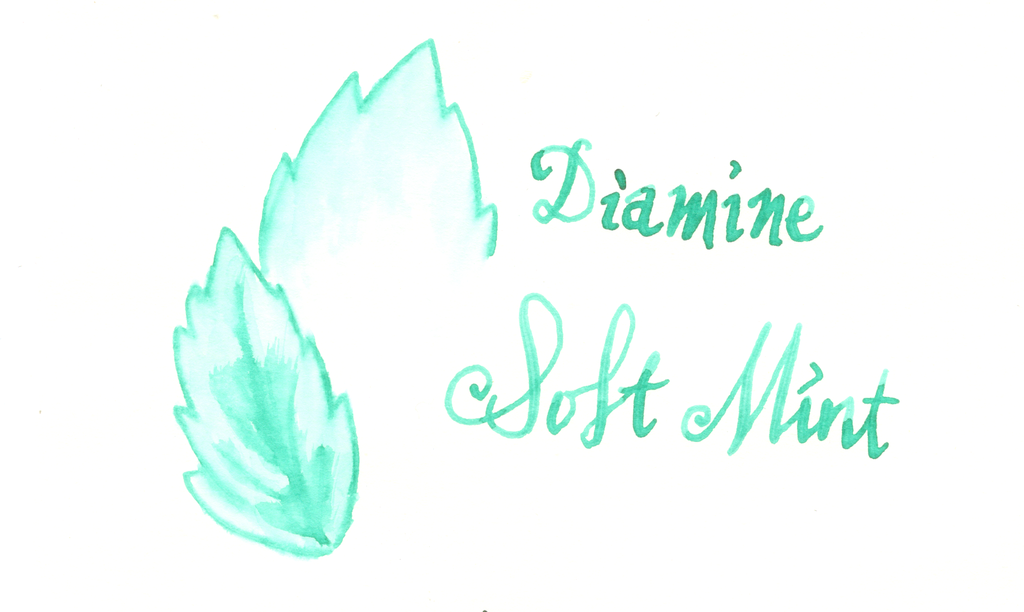 Diamine
Soft Mint